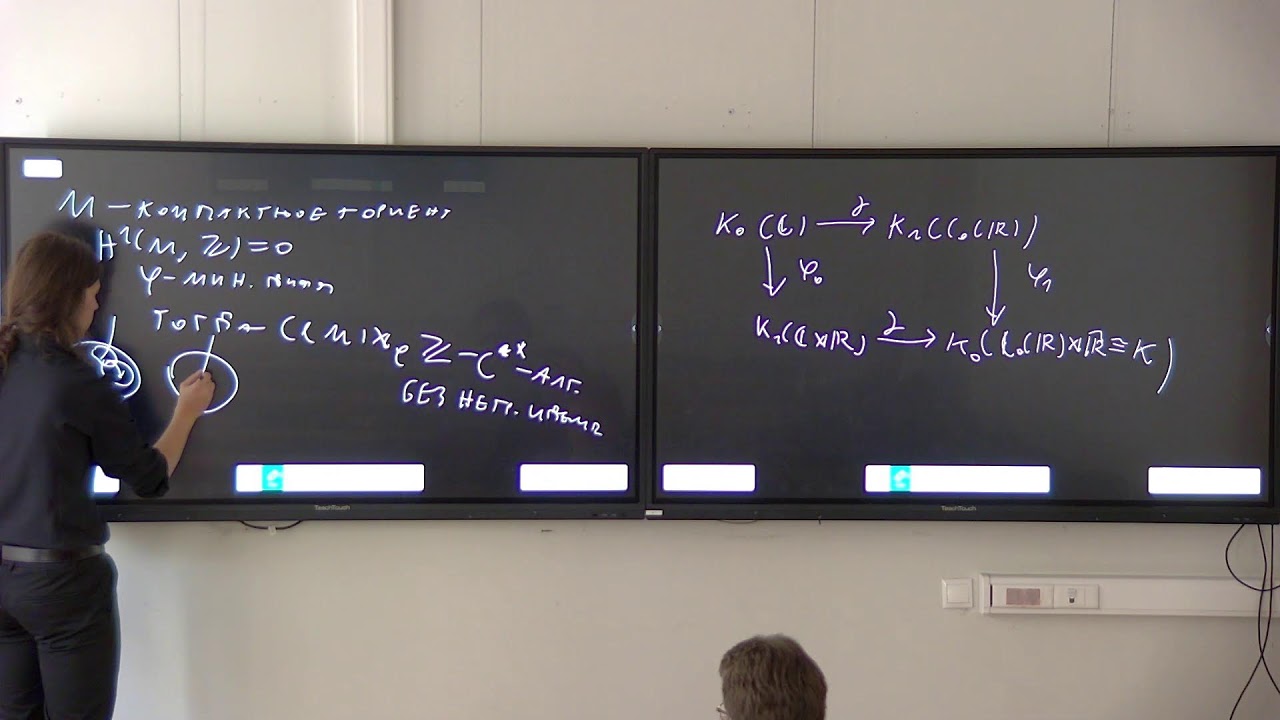 M – компактное + ориент
H¹(M, ℤ) = 0
φ – мин.
тогда C(M) ⋊_φ ℤ – C*-алг.
без нетр.
K₀(ℂ) → K₁(C₀(ℝ))
↓ φ₀ ↓ φ₁
K₁(ℂ ⋊ ℝ) → K₀(C₀(ℝ) ⋊ ℝ ≅ K)
TeachTouch
TeachTouch